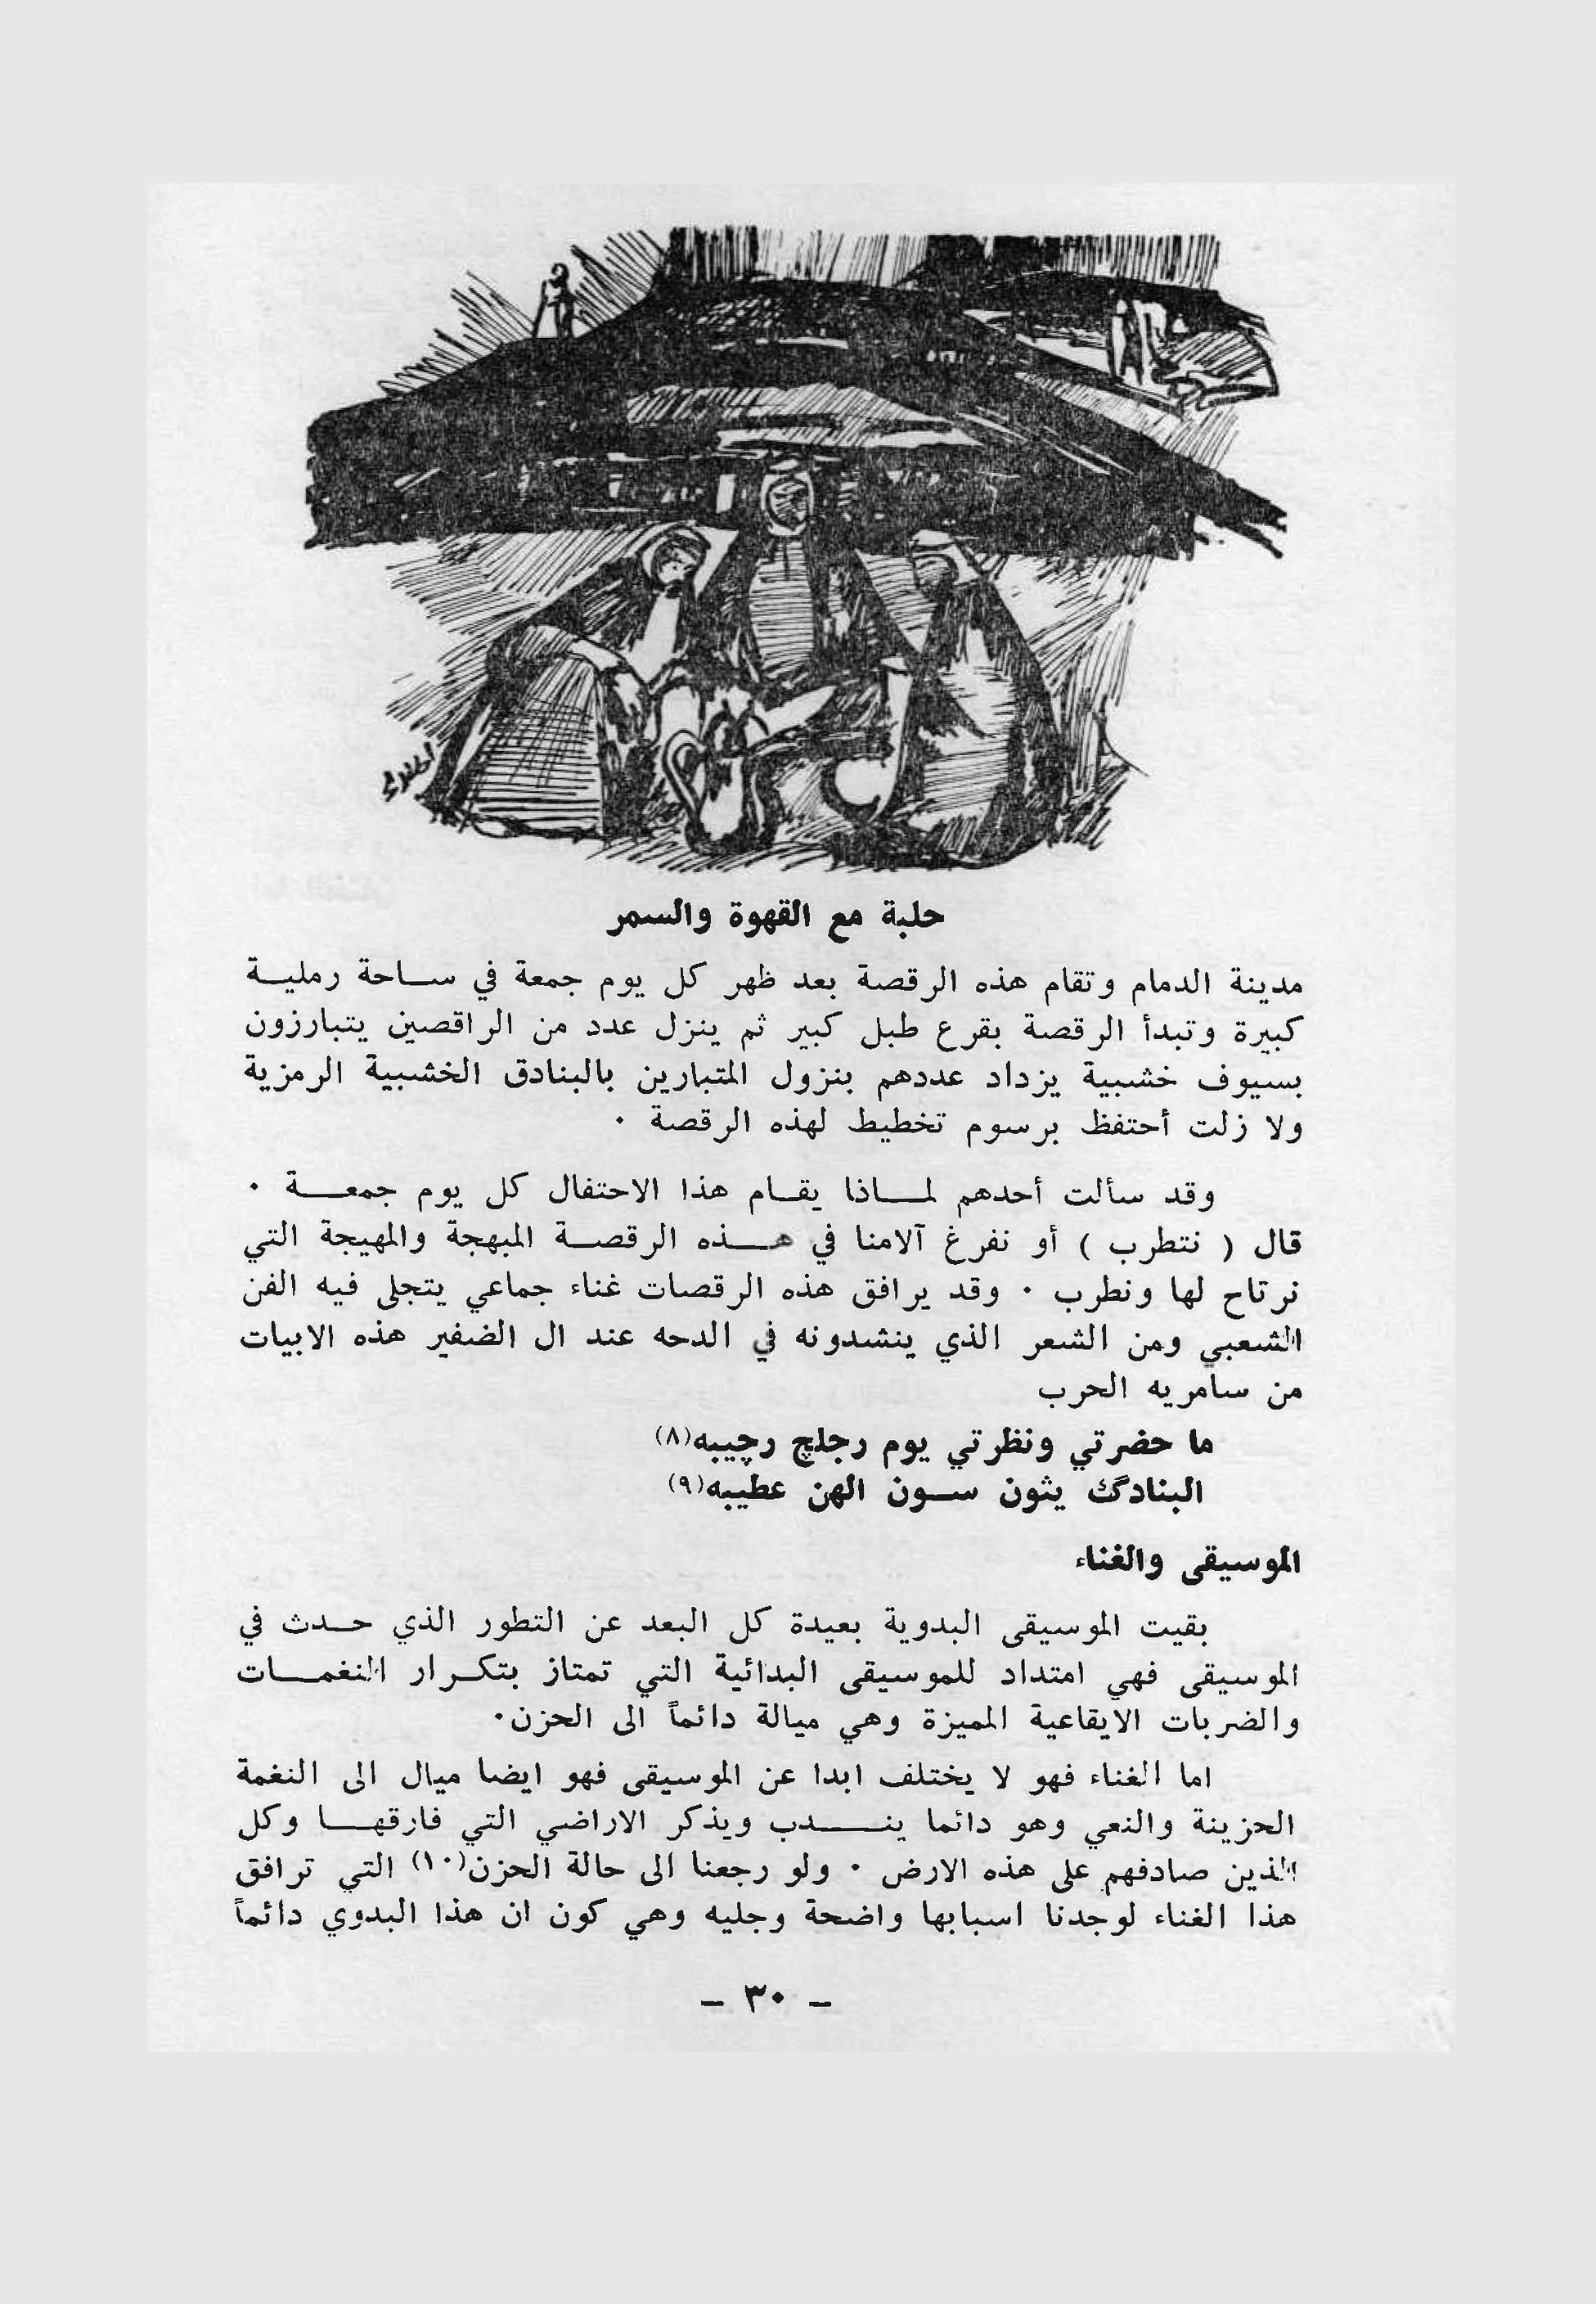 حلبة مع القهوة والسمر
مدينة الدمام وتقام هذه الرقصة بعد ظهر كل يوم جمعة في ســاحة رمليــة
كبيرة وتبدأ الرقصة بقرع طبل كبير ثم ينزل عدد من الراقصين يتبارزون
بسيوف خشبية يزداد عددهم بنزول المتبارين بالبنادق الخشبية الرمزية
ولا زلت أحتفظ برسوم تخطيط لهذه الرقصة ٠
وقد سألت أحدهم لمــاذا يقــام هذا الاحتفال كل يوم جمعــة ٠
قال ( نتطرب ) أو نفرغ آلامنا في هــذه الرقصــة المبهجة والمهيجة التي
نرتاح لها ونطرب ٠ وقد يرافق هذه الرقصات غناء جماعي يتجلى فيه الفن
الشعبي ومن الشعر الذي ينشدونه في الدحه عند ال الضفير هذه الابيات
من سامريه الحرب
ما حضرتي ونظرتي يوم رجلچ رچيبه(٨)
البنادگ يثون ســون الهن عطيبه(٩)
الموسيقى والغناء
بقيت الموسيقى البدوية بعيدة كل البعد عن التطور الذي حــدث في
الموسيقى فهي امتداد للموسيقى البدائية التي تمتاز بتكــرار النغمــات
والضربات الايقاعية المميزة وهي ميالة دائماً الى الحزن٠
اما الغناء فهو لا يختلف ابدا عن الموسيقى فهو ايضا ميال الى النغمة
الحزينة والنعي وهو دائما ينــدب ويذكر الاراضي التي فارقهــا وكل
الذين صادفهم على هذه الارض ٠ ولو رجعنا الى حالة الحزن(١٠) التي ترافق
هذا الغناء لوجدنا اسبابها واضحة وجليه وهي كون ان هذا البدوي دائماً
– ٣٠ –